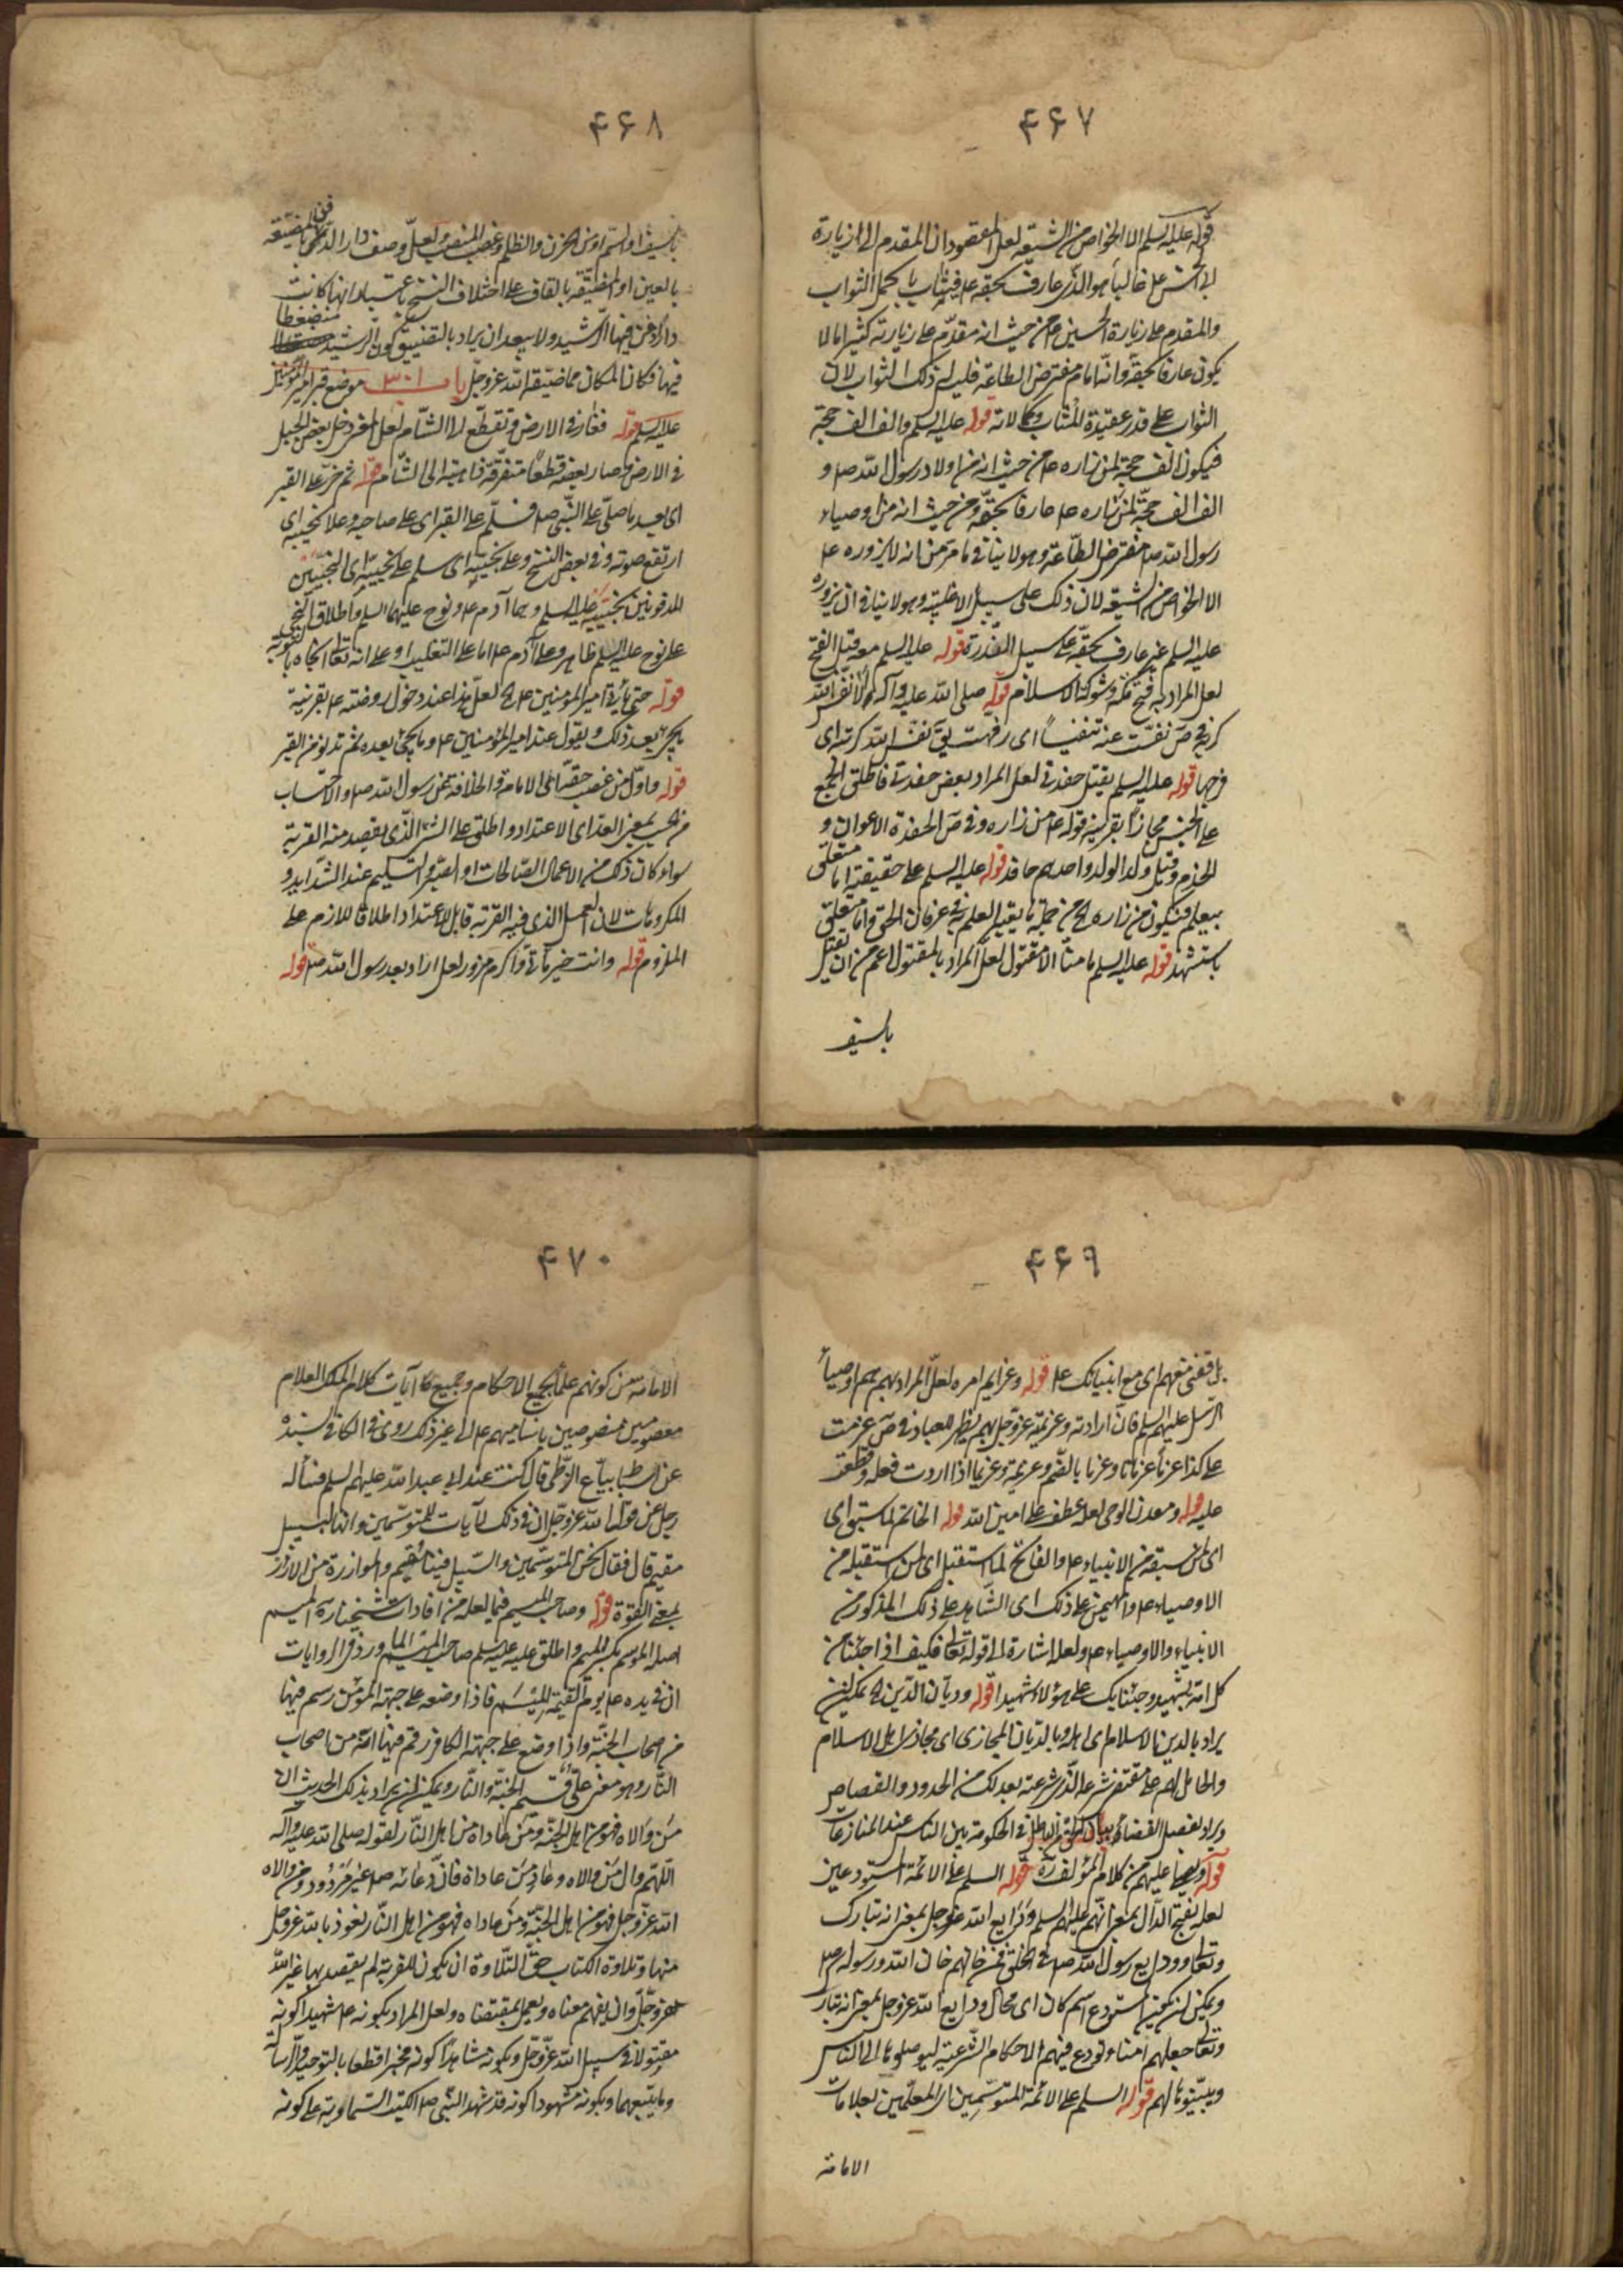 ۴۶۷
قوله عليه السلم الا الخواص من الشيعة لعل المقصود ان المقدم الى الزيارة
ابى الحسن على غالباً هو الذى عارف بحقه عليه فيثاب باكمل الثواب
والمقدم على زيارة الحسين ع من حيث انه مقدم على زيارته كثيرا ما لا
يكون عارفا بحقه وانه امام مفترض الطاعة فليس له ذلك الثواب لان
الثواب على قدر عقيدة المثاب وكمالاته قوله عليه السلم والف الف حجة
فيكون الف حجة لمن زاره ع من حيث انه من اولاد رسول الله ص و
الف الف حجة لمن زاره ع عارفا بحقه ومن حيث انه من اوصياء
رسول الله ص مفترض الطاعة وهو لا ينافى ما مر من انه لا يزوره ع
الا الخواص من الشيعة لان ذلك على سبيل الاغلبية وهو لا ينافى ان يزوره
عليه السلم غير عارف بحقه على سبيل الندرة قوله عليه السلم معه قبل الفتح
لعل المراد به فتح مكة وشوكة الاسلام قوله صلى الله عليه وآله الا نفس الله
كربته فى ص نفست عنه تنفيساً اى رفهت يق نفس الله كربته اى
فرجها قوله عليه السلم يقتل حفدتى لعل المراد بعض حفدتى فاطلق الجمع
على الجنس مجازاً بقرينة قوله ع من زاره وفى ص الحفدة الاعوان و
الخدم وقيل ولد الولد واحدهم حافد قوله عليه السلم على حقيقته اما متعلق
بيعلم فيكون من زاره ع من جملة ما يقيد العلم به فى عرفان الحق واما متعلق
باستشهد قوله عليه السلم ما منا الا مقتول لعل المراد بالمقتول اعم من ان يقتل
بالسيف
۴۶۸
بالسيف او السم او من الحزن والظلم وغصب المنصب ولعل وصف دار الذى دفن بالمضيعة
بالعين او المضيقة بالقاف على اختلاف النسخ باعتبار انها كانت
دارا دفن فيها الرشيد ولا يبعد ان يراد بالتضييق كون الرشيد منضغطا
فيها فكان المكان مما ضيقه الله عز وجل باب ۳۰۱ موضع قبر امير المؤمنين
عليه السلم قوله فغار فى الارض وتقطع الى الشام لعل المعنى دخل بعض الجبل
فى الارض وصار بعضه قطعاً متفرقة ذاهبة الى الشام قوله ثم خر على القبر
اى بعد ما صلى على النبى ص فسلم على القبر اى على صاحبه وعلا نحيبه اى
ارتفع صوته وفى بعض النسخ وعلى نجيبيه اى سلم على نجيبيه اى النجيبين
المدفونين بجنبيه عليه السلم وهما آدم ع ونوح عليهما السلم واطلاق النجى
على نوح عليه السلم ظاهر وعلى آدم ع اما على التغليب او على انه تعالى نجاه بالتوبة
قوله حتى يأتى امير المؤمنين ع لعل هذا عند دخول روضته ع بقرينة
ما يجئ بعد ذلك ويقول عند امير المؤمنين ع وما يجئ بعده ثم تدنو من القبر
قوله واول من غصب حقه اى الامامة والخلافة عن رسول الله ص والاحتساب
من الحسب بمعنى العد اى الاعتداد واطلق على الشئ الذى يقصد منه القربة
سواء كان ذلك من الاعمال الصالحات او الصبر والتسليم عند الشدايد و
المكروهات لان العمل الذى فيه القربة قابل للاعتداد اطلاقا للازم على
الملزوم قوله وانت خير مأتى واكرم مزور لعل اراد بعد رسول الله ص قوله
۴۶۹
بل قفى معهم اى مع انبيائك ع قوله وعزايم امره لعل المراد بهم هم اوصياء
الرسل عليهم السلم فان ارادته وعزيمة عز وجل بهم يظهر للعباد فى ص عزمت
على كذا عزماً وعزما بالضم وعزيمة وعزيما اذا اردت فعله وقطعت
عليه قوله ومعدن الوحى لعله عطف على امين الله قوله الخاتم لما سبق اى
اى لمن سبقه من الانبياء ع والفاتح لما استقبل اى لمن استقبله من
الاوصياء ع والمهيمن على ذلك اى الشاهد على ذلك المذكور من
الانبياء والاوصياء ع ولعله اشارة الى قوله تعالى فكيف اذا جئنا من
كل امة بشهيد وجئنا بك على هؤلاء شهيدا قوله وديان الدين ع يمكن ان
يراد بالدين الاسلام اى اهله وبالديان المجازى اى مجازى اهل الاسلام
والحامل لهم على مقتضى شرعه الذى شرعته بعدلك من الحدود والقصاص
ويراد بفصل القضاء بيان الحق من الباطل فى الحكومة بين الناس عند المنازعات
قوله وصيا عليهم من كلام المؤلف ره قوله السلم على الائمة المستودعين
لعله بفتح الدال بمعنى انهم عليهم السلم ودايع الله عز وجل بمعنى انه تبارك
وتعالى وودايع رسول الله ص فى الخلق فمن خانهم خان الله ورسوله ص
ويمكن ان يكون المستودع اسم مكان اى محال ودايع الله عز وجل بمعنى انه تبارك
وتعالى جعلهم امناء وتودع فيهم الاحكام الشرعية ليوصلوها الى الناس
ويبينوها لهم قوله السلم على الائمة المتوسمين اى المعلمين بعلامات
الامامة
۴۷۰
الامامة من كونهم علماء بجميع الاحكام وجميع آيات كلام الملك العلام
معصومين منصوصين باساميهم ع الى غير ذلك روى فى الكافى بسنده
عن اسباط بياع الزطى قال كنت عند ابى عبد الله عليهم السلم فسأله
رجل عن قول الله عز وجل ان فى ذلك لآيات للمتوسمين وانها لبسبيل
مقيم قال فقال نحن المتوسمين والسبيل فينا مقيم والموازرة من الازر
بمعنى القوة قوله وصاحب الميسم فيما لعله من افادات شيخنا ره الميسم
اصله الموسم بكسر الميم واطلق عليه عليه السلم صاحب الميسم لما ورد فى الروايات
ان فى يده ع يوم القيمة الميسم فاذا وضعه على جبهة المؤمن رسم فيها
من اصحاب الجنة واذا وضع على جبهة الكافر رقم فيها انه من اصحاب
النار وهو معنى على قسيم الجنة والنار ويمكن ان يراد بذلك الحديث ان
من والاه فهو من اهل الجنة ومن عاداه من اهل النار لقوله صلى الله عليه وآله
اللهم وال من والاه وعاد من عاداه فان دعائه ص غير مردود ومن والاه
الله عز وجل فهو من اهل الجنة ومن عاداه فهو من اهل النار نعوذ بالله عز وجل
منها وتلاوة الكتاب حق التلاوة ان يكون للقربة لم يقصد بها غير الله
عز وجل وان يفهم معناه ويعمل بمقتضاه ولعل المراد بكونه ع شهيدا كونه
مقتولا فى سبيل الله عز وجل وبكونه شاهدا كونه مخبرا قطعا بالتوحيد والرسالة
وما يتبعهما وبكونه مشهودا كونه قد شهد النبى ص الكتب السماوية على كونه